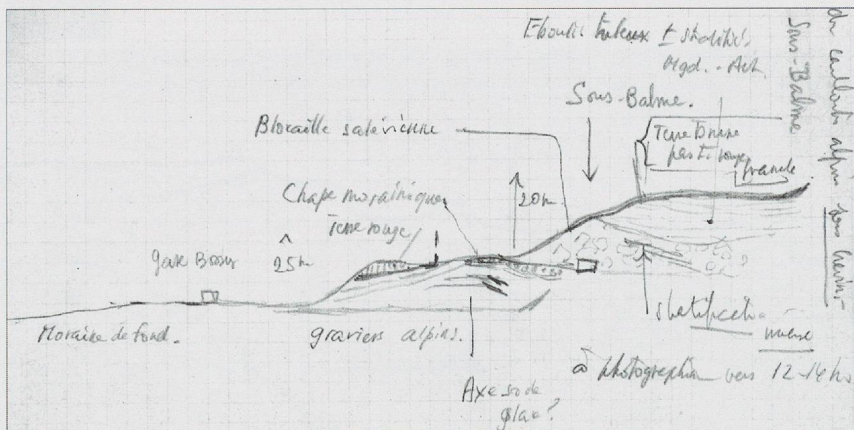 Eboulis tufeux ± stratifiés
Mgd. - Ach.
Sous-Balme.
Blocaille salévienne
Terre brune
pas ti rouge
franche
Chape morainique
Terre rouge
20m
gare Bossey
25m
Moraine de fond.
graviers alpins.
Stratification
inverse
à photographier vers 12-14 hs
Axe so de
glace?
Sous-Balme
de cailloutis alpin sous